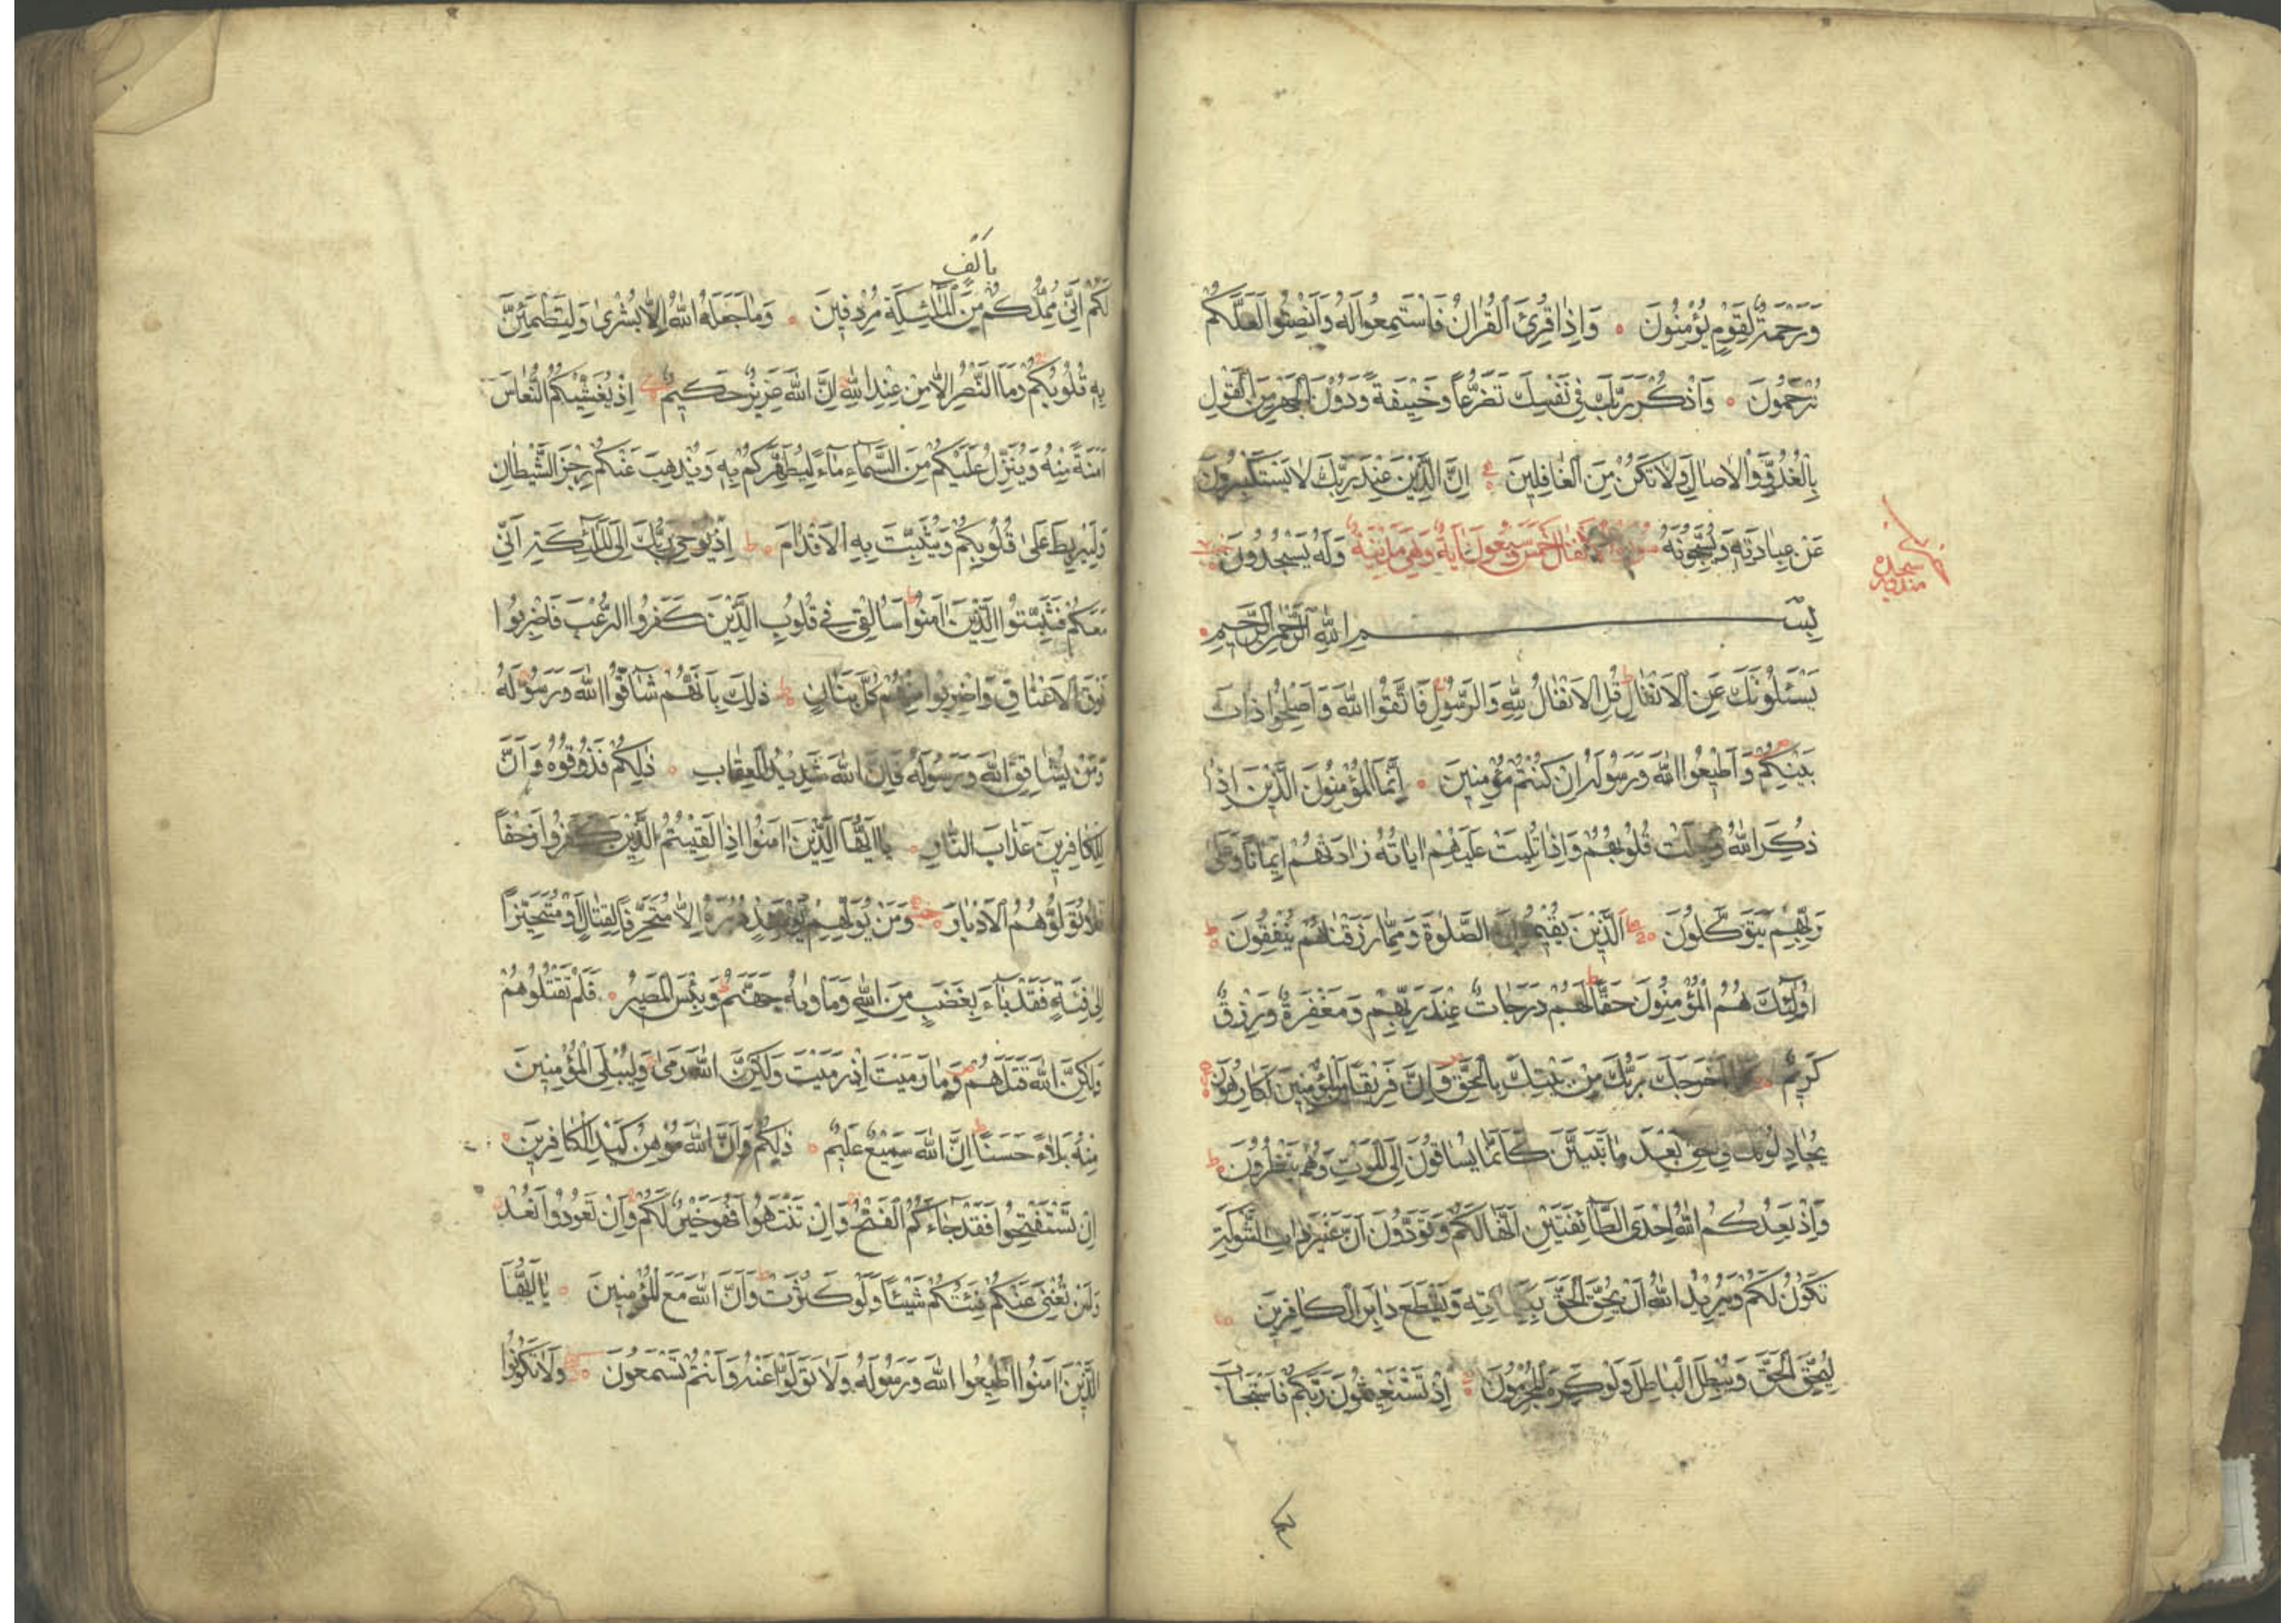 وَرَحْمَةٌ لِقَوْمٍ يُؤْمِنُونَ وَاِذَا قُرِئَ الْقُرْاٰنُ فَاسْتَمِعُوا لَهُ وَاَنْصِتُوا لَعَلَّكُمْ
تُرْحَمُونَ وَاذْكُرْ رَبَّكَ فِي نَفْسِكَ تَضَرُّعاً وَخِيفَةً وَدُونَ الْجَهْرِ مِنَ الْقَوْلِ
بِالْغُدُوِّ وَالْاٰصَالِ وَلَا تَكُنْ مِنَ الْغَافِلِينَ اِنَّ الَّذِينَ عِنْدَ رَبِّكَ لَا يَسْتَكْبِرُونَ
عَنْ عِبَادَتِهِ وَيُسَبِّحُونَهُ وَلَهُ يَسْجُدُونَ
سورة الانفال خمس وسبعون اٰية وهي مدنية
سجده
بِسْمِ اللّٰهِ الرَّحْمٰنِ الرَّحِيمِ
يَسْئَلُونَكَ عَنِ الْاَنْفَالِ قُلِ الْاَنْفَالُ لِلّٰهِ وَالرَّسُولِ فَاتَّقُوا اللّٰهَ وَاَصْلِحُوا ذَاتَ
بَيْنِكُمْ وَاَطِيعُوا اللّٰهَ وَرَسُولَهُ اِنْ كُنْتُمْ مُؤْمِنِينَ اِنَّمَا الْمُؤْمِنُونَ الَّذِينَ اِذَا
ذُكِرَ اللّٰهُ وَجِلَتْ قُلُوبُهُمْ وَاِذَا تُلِيَتْ عَلَيْهِمْ اٰيَاتُهُ زَادَتْهُمْ اِيمَاناً وَعَلٰى
رَبِّهِمْ يَتَوَكَّلُونَ اَلَّذِينَ يُقِيمُونَ الصَّلٰوةَ وَمِمَّا رَزَقْنَاهُمْ يُنْفِقُونَ
اُولٰئِكَ هُمُ الْمُؤْمِنُونَ حَقّاً لَهُمْ دَرَجَاتٌ عِنْدَ رَبِّهِمْ وَمَغْفِرَةٌ وَرِزْقٌ
كَرِيمٌ اَخْرَجَكَ رَبُّكَ مِنْ بَيْتِكَ بِالْحَقِّ وَاِنَّ فَرِيقاً مِنَ الْمُؤْمِنِينَ لَكَارِهُونَ
يُجَادِلُونَكَ فِي الْحَقِّ بَعْدَ مَا تَبَيَّنَ كَاَنَّمَا يُسَاقُونَ اِلَى الْمَوْتِ وَهُمْ يَنْظُرُونَ
وَاِذْ يَعِدُكُمُ اللّٰهُ اِحْدَى الطَّائِفَتَيْنِ اَنَّهَا لَكُمْ وَتَوَدُّونَ اَنَّ غَيْرَ ذَاتِ الشَّوْكَةِ
تَكُونُ لَكُمْ وَيُرِيدُ اللّٰهُ اَنْ يُحِقَّ الْحَقَّ بِكَلِمَاتِهِ وَيَقْطَعَ دَابِرَ الْكَافِرِينَ
لِيُحِقَّ الْحَقَّ وَيُبْطِلَ الْبَاطِلَ وَلَوْ كَرِهَ الْمُجْرِمُونَ اِذْ تَسْتَغِيثُونَ رَبَّكُمْ فَاسْتَجَابَ
بِاَلْفٍ
لَكُمْ اَنِّي مُمِدُّكُمْ مِنَ الْمَلٰئِكَةِ مُرْدِفِينَ وَمَا جَعَلَهُ اللّٰهُ اِلَّا بُشْرٰى وَلِتَطْمَئِنَّ
بِهِ قُلُوبُكُمْ وَمَا النَّصْرُ اِلَّا مِنْ عِنْدِ اللّٰهِ اِنَّ اللّٰهَ عَزِيزٌ حَكِيمٌ اِذْ يُغَشِّيكُمُ النُّعَاسَ
اَمَنَةً مِنْهُ وَيُنَزِّلُ عَلَيْكُمْ مِنَ السَّمَاءِ مَاءً لِيُطَهِّرَكُمْ بِهِ وَيُذْهِبَ عَنْكُمْ رِجْزَ الشَّيْطَانِ
وَلِيَرْبِطَ عَلٰى قُلُوبِكُمْ وَيُثَبِّتَ بِهِ الْاَقْدَامَ اِذْ يُوحِي رَبُّكَ اِلَى الْمَلٰئِكَةِ اَنِّي
مَعَكُمْ فَثَبِّتُوا الَّذِينَ اٰمَنُوا سَاُلْقِي فِي قُلُوبِ الَّذِينَ كَفَرُوا الرُّعْبَ فَاضْرِبُوا
فَوْقَ الْاَعْنَاقِ وَاضْرِبُوا مِنْهُمْ كُلَّ بَنَانٍ ذٰلِكَ بِاَنَّهُمْ شَاقُّوا اللّٰهَ وَرَسُولَهُ
وَمَنْ يُشَاقِقِ اللّٰهَ وَرَسُولَهُ فَاِنَّ اللّٰهَ شَدِيدُ الْعِقَابِ ذٰلِكُمْ فَذُوقُوهُ وَاَنَّ
لِلْكَافِرِينَ عَذَابَ النَّارِ يَا اَيُّهَا الَّذِينَ اٰمَنُوا اِذَا لَقِيتُمُ الَّذِينَ كَفَرُوا زَحْفاً
فَلَا تُوَلُّوهُمُ الْاَدْبَارَ وَمَنْ يُوَلِّهِمْ يَوْمَئِذٍ دُبُرَهُ اِلَّا مُتَحَرِّفاً لِقِتَالٍ اَوْ مُتَحَيِّزاً
اِلٰى فِئَةٍ فَقَدْ بَاءَ بِغَضَبٍ مِنَ اللّٰهِ وَمَأْوٰيهُ جَهَنَّمُ وَبِئْسَ الْمَصِيرُ فَلَمْ تَقْتُلُوهُمْ
وَلٰكِنَّ اللّٰهَ قَتَلَهُمْ وَمَا رَمَيْتَ اِذْ رَمَيْتَ وَلٰكِنَّ اللّٰهَ رَمٰى وَلِيُبْلِيَ الْمُؤْمِنِينَ
مِنْهُ بَلَاءً حَسَناً اِنَّ اللّٰهَ سَمِيعٌ عَلِيمٌ ذٰلِكُمْ وَاَنَّ اللّٰهَ مُوهِنُ كَيْدِ الْكَافِرِينَ
اِنْ تَسْتَفْتِحُوا فَقَدْ جَاءَكُمُ الْفَتْحُ وَاِنْ تَنْتَهُوا فَهُوَ خَيْرٌ لَكُمْ وَاِنْ تَعُودُوا نَعُدْ
وَلَنْ تُغْنِيَ عَنْكُمْ فِئَتُكُمْ شَيْئاً وَلَوْ كَثُرَتْ وَاَنَّ اللّٰهَ مَعَ الْمُؤْمِنِينَ يَا اَيُّهَا
الَّذِينَ اٰمَنُوا اَطِيعُوا اللّٰهَ وَرَسُولَهُ وَلَا تَوَلَّوْا عَنْهُ وَاَنْتُمْ تَسْمَعُونَ وَلَا تَكُونُوا